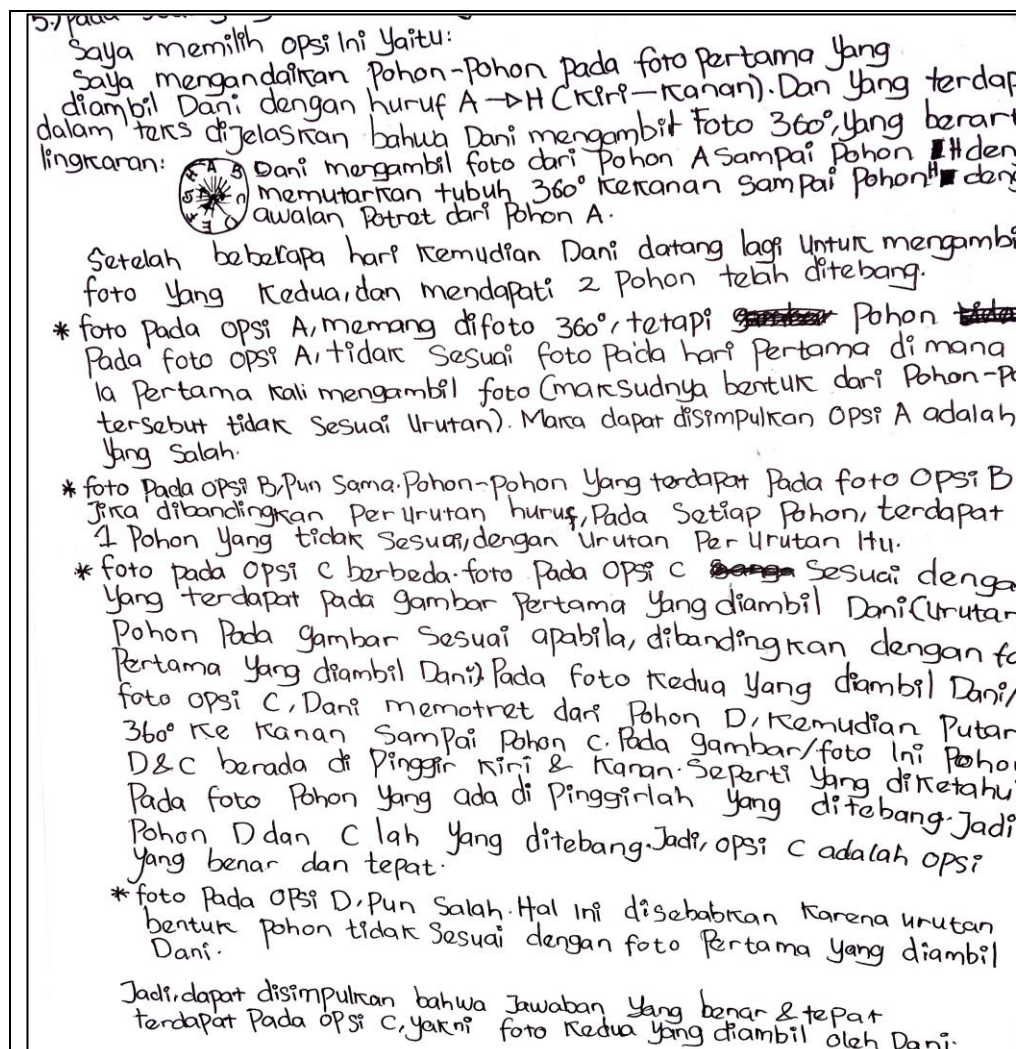 5.) Pada
Saya memilih opsi ini yaitu:
Saya mengandaikan Pohon-Pohon Pada foto Pertama Yang
diambil Dani dengan huruf A → H (Kiri – Kanan). Dan Yang terdap
dalam teks dijelaskan bahwa Dani mengambil Foto 360°, Yang berart
lingkaran: Dani mengambil foto dari Pohon A Sampai Pohon H den
memutarkan tubuh 360° Kekanan Sampai Pohon H den
awalan Potret dari Pohon A.
Setelah beberapa hari Kemudian Dani datang lagi Untuk mengambi
foto Yang Kedua, dan mendapati 2 Pohon telah ditebang.
* foto Pada OPSi A, memang difoto 360°, tetapi Pohon
Pada foto OPSi A, tidak Sesuai foto Pada hari Pertama di mana
Ia Pertama Kali mengambil foto (maksudnya bentuk dari Pohon-Po
tersebut tidak Sesuai Urutan). Maka dapat disimpulkan OPSi A adalah
Yang Salah.
* foto Pada OPSi B, Pun Sama. Pohon-Pohon Yang terdapat Pada foto OPSi B
Jika dibandingkan Per Urutan huruf, Pada Setiap Pohon, terdapat
1 Pohon Yang tidak Sesuai, dengan Urutan Per Urutan Itu.
* foto Pada OPSi C berbeda. foto Pada OPSi C Sesuai denga
Yang terdapat Pada gambar Pertama Yang diambil Dani (Urutan
Pohon Pada gambar Sesuai apabila, dibandingkan dengan fo
Pertama Yang diambil Dani). Pada foto Kedua Yang diambil Dani/
foto OPSi C, Dani memotret dari Pohon D, Kemudian Putar
360° Ke Kanan Sampai Pohon C. Pada gambar/foto Ini Poho
D & C berada di Pinggir Kiri & Kanan. Seperti Yang diketahui
Pada foto Pohon Yang ada di Pinggirlah Yang ditebang. Jadi
Pohon D dan C lah Yang ditebang. Jadi, OPSi C adalah OPSi
Yang benar dan tepat.
* foto Pada OPSi D, Pun Salah. Hal Ini disebabkan Karena urutan
bentuk Pohon tidak Sesuai dengan foto Pertama Yang diambil
Dani.
Jadi, dapat disimpulkan bahwa Jawaban Yang benar & tepat
terdapat Pada OPSi C, Yakni foto Kedua Yang diambil oleh Dani.